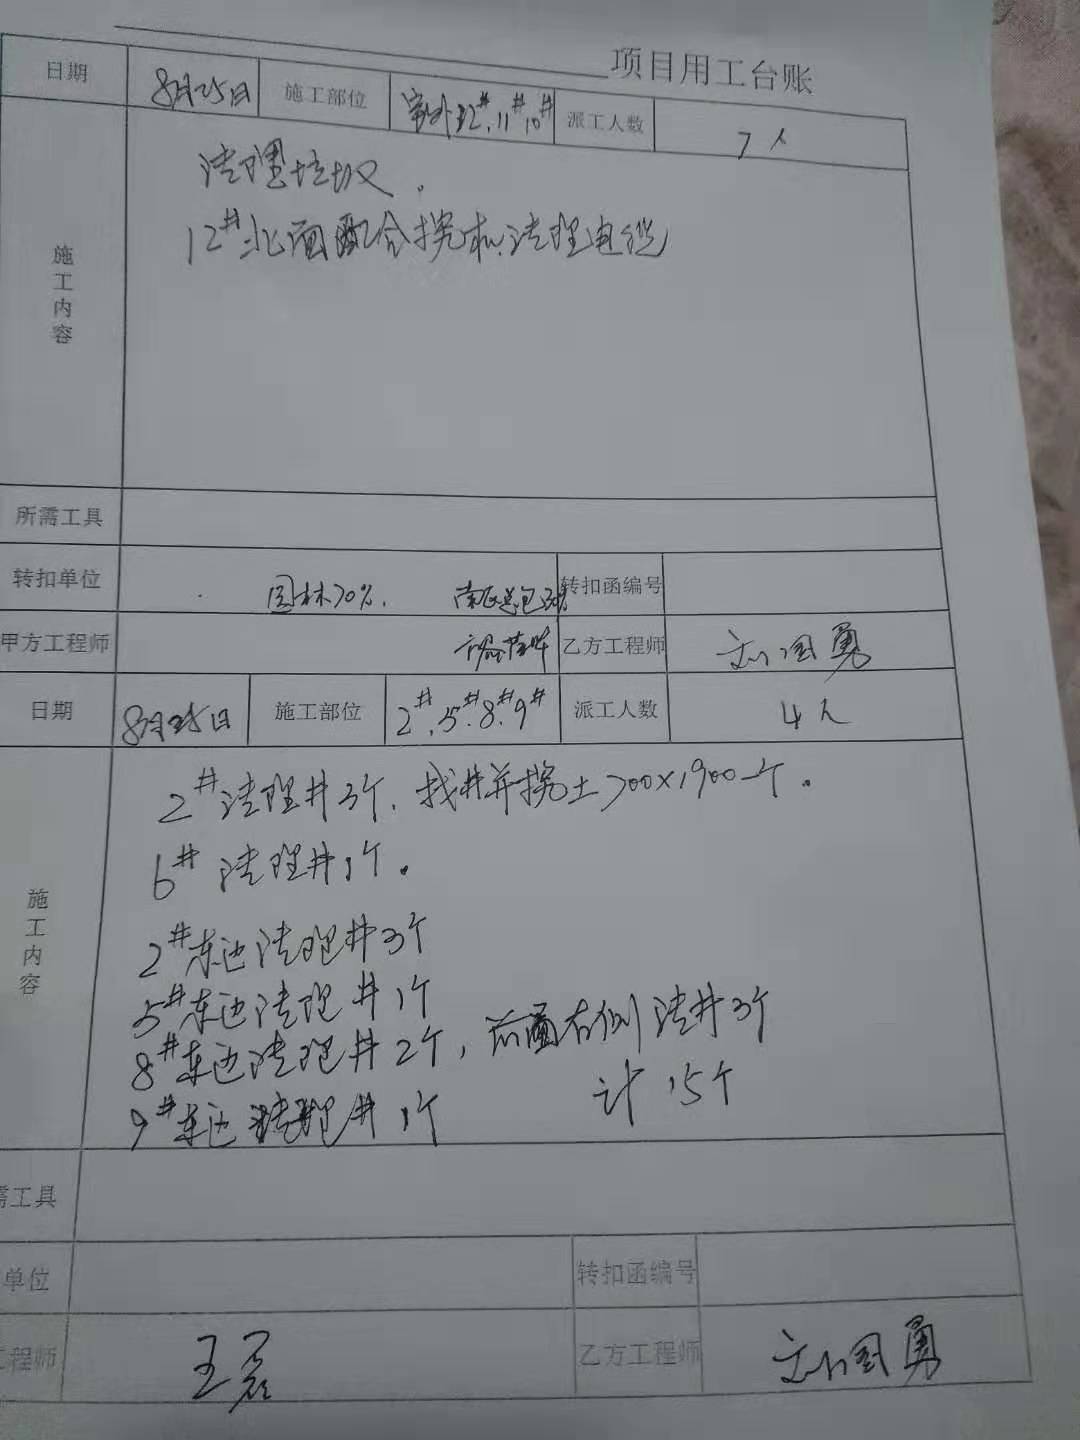 项目用工台账
日期 8月25日 施工部位 室外12#.11#10# 派工人数 7人
施工内容
清理垃圾.
12#北面配合挖机清理电缆
所需工具
转扣单位 园林70%. 总包30% 转扣函编号
甲方工程师 乙方工程师 刘国勇
日期 8月25日 施工部位 2#.5#.8#.9# 派工人数 4人
施工内容
2#清理井3个.找井并挖土700×1900一个.
6#清理井1个.
2#东边清理井3个
5#东边清理井1个
8#东边清理井2个,前面右侧清井3个
9#东边清理井1个 计15个
需工具
单位 转扣函编号
工程师 王磊 乙方工程师 刘国勇